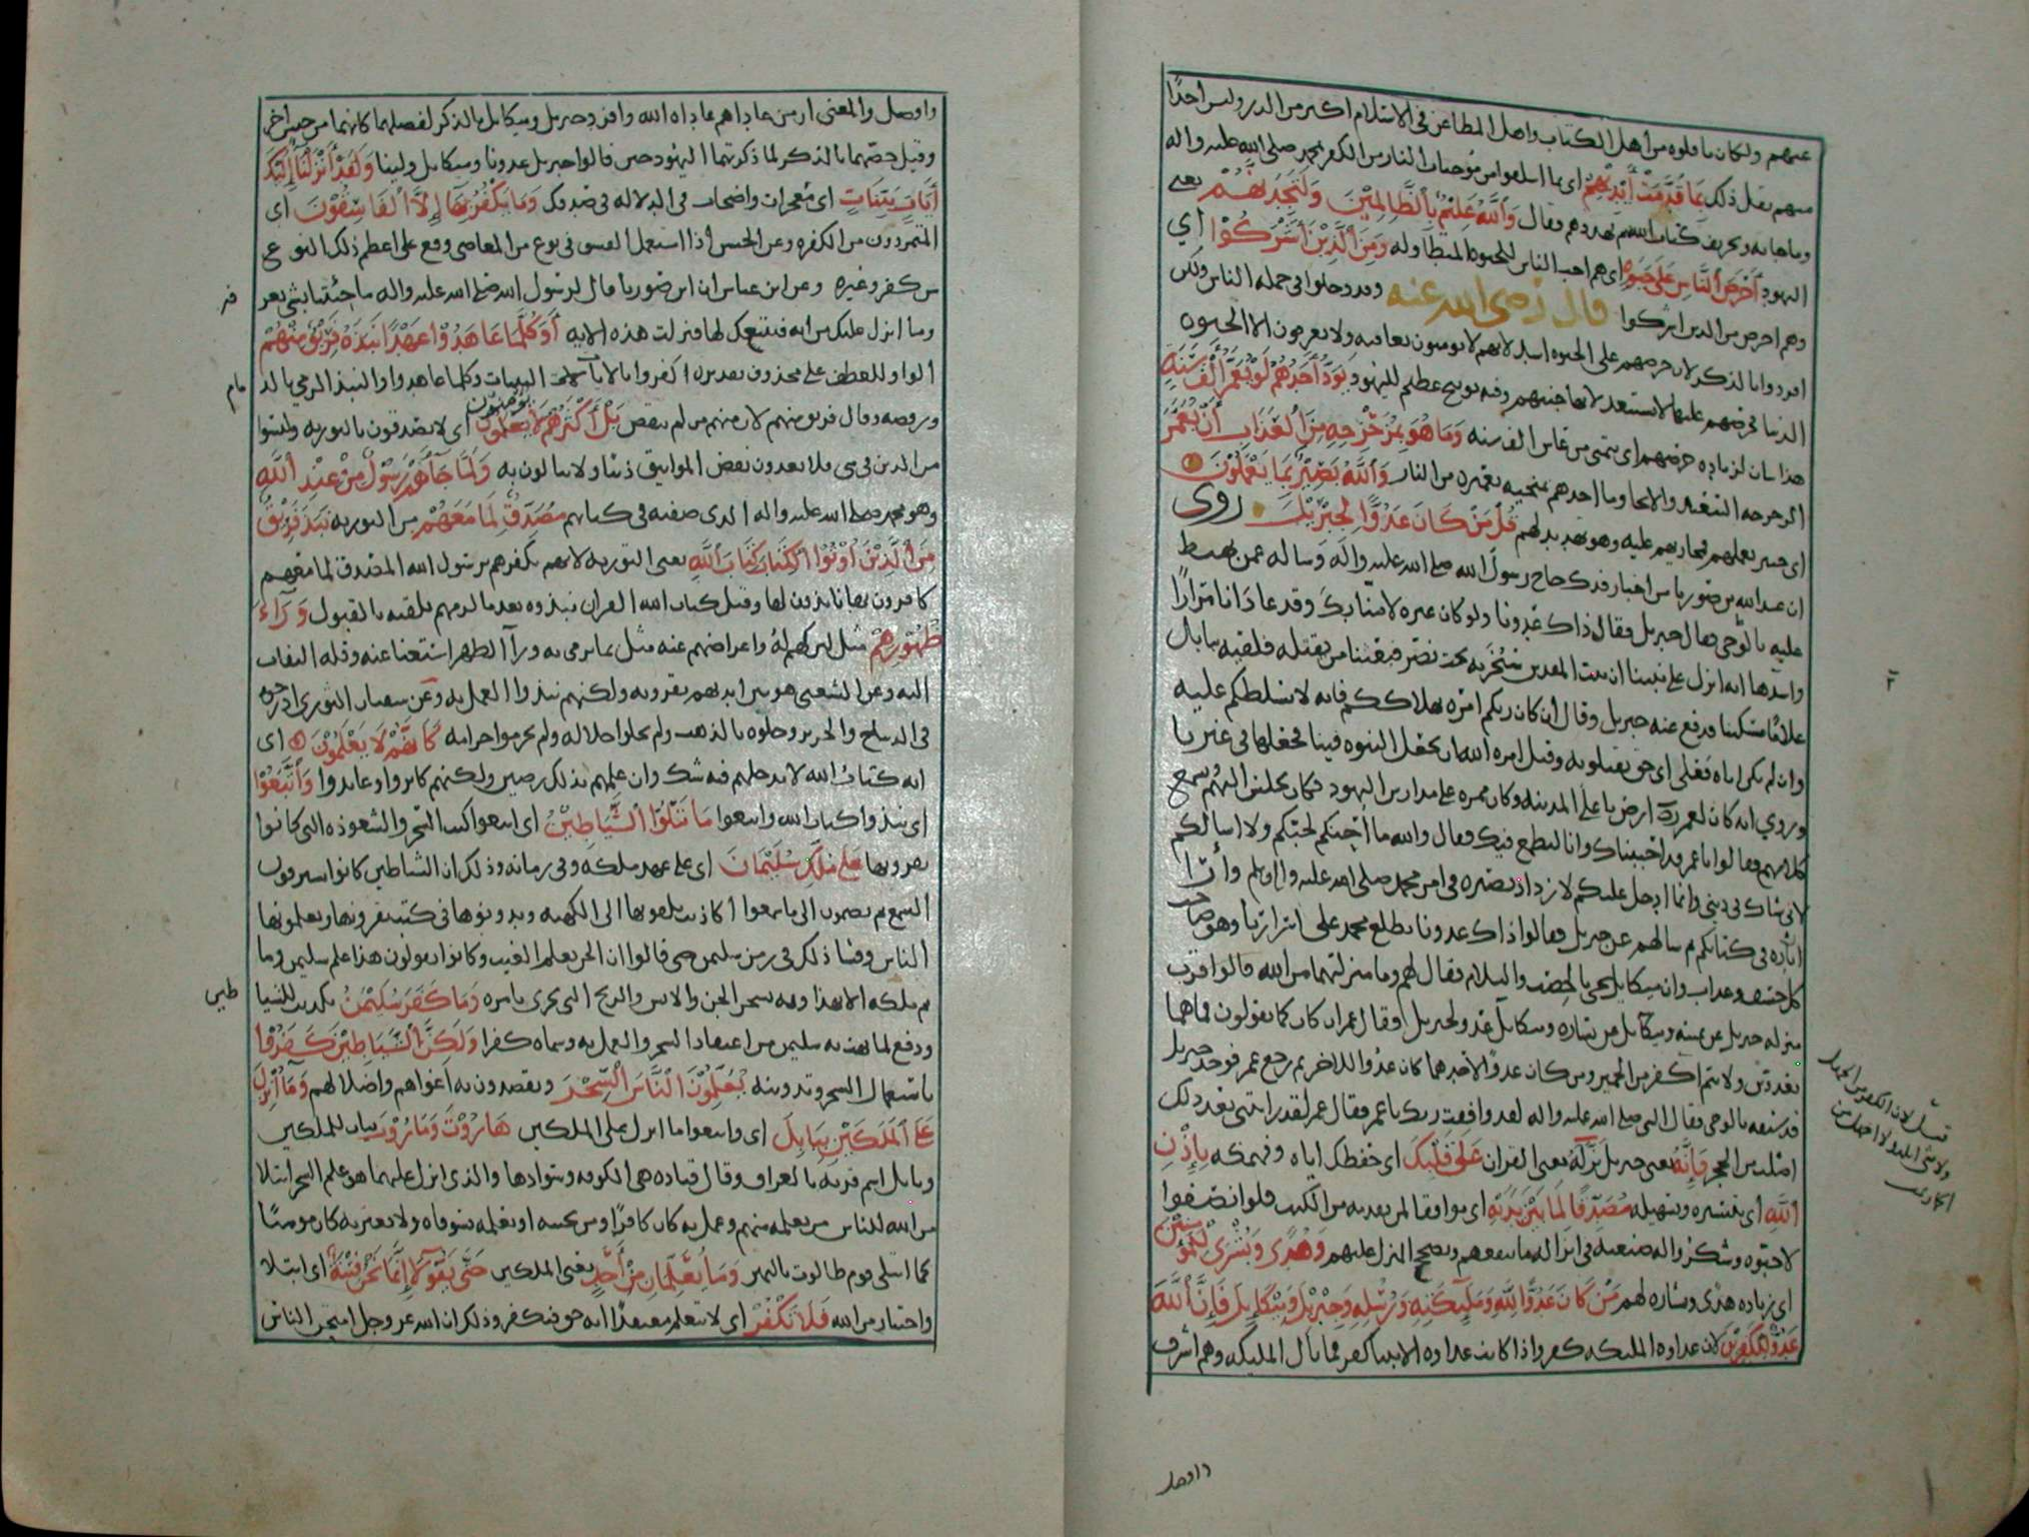 عنهم ولكان ناقلوه من أهل الكتاب واصل المطاعن في الاسلام اكثر من الدر وليس أحدًا
منهم نقل ذلك بِمَا قَدَّمَتْ أَيْدِيهِمْ اي بما اسلفوا من موجبات النار من الكفر بمحمد صلى الله عليه واله
وما جا به وتحريف كتاب الله ثم هددهم فقال وَاللَّهُ عَلِيْمٌ بِالظَّالِمِيْنَ وَلَتَجِدَنَّهُمْ يعني
اليهود أَحْرَصَ النَّاسِ عَلَى حَيَوةٍ اي هم احب الناس للحيوة المتطاوله وَمِنَ الَّذِيْنَ أَشْرَكُوْا أي
وهم احرص من الذين اشركوا قال رضي الله عنه وقد دخلوا في جمله الناس ولكن
افردوا بالذكر لان حرصهم على الحيوه اشد لانهم لا يومنون بعاقبه ولا يعرفون الا الحيوه
الدنيا فحرصهم عليها لا يستبعد لانها جنتهم وفيه توبيخ عظيم لليهود يَوَدُّ أَحَدُهُمْ لَوْ يُعَمَّرُ أَلْفَ سَنَةٍ
هذا بيان لزياده حرصهم اي يتمنى من عاش الف سنه وَمَا هُوَ بِمُزَحْزِحِهِ مِنَ الْعَذَابِ أَنْ يُعَمَّرَ
الزحزحه التبعيد والانحا وما احدهم بمنجيه تعميره من النار وَاللَّهُ بَصِيْرٌ بِمَا يَعْمَلُوْنَ
اي خبير بعملهم فمجازيهم عليه وهو تهديد لهم قُلْ مَنْ كَانَ عَدُوًّا لِجِبْرِيْلَ روى
ان عبدالله بن صوريا من احبار فدك حاج رسول الله صلى الله عليه واله وساله عمن يهبط
عليه بالوحي فقال جبريل فقال ذاك عدونا ولو كان غيره لامنا بك وقد عادانا مرارًا
واشدها انه انزل على نبينا ان بيت المقدس سيخربه بخت نصر فبعثنا من يقتله فلقيه ببابل
غلامًا مسكينا فدفع عنه جبريل وقال ان كان ربكم امره بهلاككم فانه لا يسلطكم عليه
وان لم يكن اياه فعلى اي حق تقتلونه وقيل امره الله ان يجعل النبوه فينا فجعلها في غيرنا
وروي انه كان لعمر رض ارض باعلى المدينه وكان ممره على مدارس اليهود فكان يجلس اليهم يسمع
كلامهم فقالوا يا عمر قد احببناك وانا لنطمع فيك فقال والله ما أجيئكم لحبكم ولا اسألكم
لاني شاك في ديني وانما ادخل عليكم لازداد بصيره في امر محمد صلى الله عليه واله وسلم وأرا
اثاره في كتابكم ثم سالهم عن جبريل فقالوا ذاك عدونا يطلع محمد على اسرارنا وهو صاحب
كل خسف وعذاب وان ميكايل يجي بالخصب والسلام فقال لهم وما منزلتهما من الله قالوا اقرب
منزله جبريل عن يمينه وميكايل عن يساره وميكايل عدو لجبريل فقال عمر ان كان كما تقولون فما هما
بعدوين ولانتم اكفر من الحمير ومن كان عدوًا لاحدهما كان عدوا للاخر ثم رجع عمر فوجد جبريل
قد سبقه بالوحي فقال النبي صلى الله عليه واله لقد وافقك ربك يا عمر فقال عمر لقد رايتني بعد ذلك
اصلب من الحجر فَإِنَّهُ يعني جبريل نَزَّلَهُ يعني القران عَلَى قَلْبِكَ اي حفظك اياه وفهمكه بِإِذْنِ
اللَّهِ أي بتيسيره وتسهيله مُصَدِّقًا لِمَا بَيْنَ يَدَيْهِ اي موافقا لمن بعد به من الكتب فلو انصفوا
لاحبوه وشكروا له صنيعه في انزاله ما ينفعهم ويصحح المنزل عليهم وَهُدًى وَبُشْرَى لِلْمُؤْمِنِيْنَ
اي زياده هدًى وبشاره لهم مَنْ كَانَ عَدُوًّا لِلَّهِ وَمَلَئِكَتِهِ وَرُسُلِهِ وَجِبْرِيْلَ وَمِيْكَايِلَ فَإِنَّ اللَّهَ
عَدُوٌّ لِلْكَفِرِيْنَ لان عداوه الملئكه كفر واذا كانت عداوه الانبيا كفر فما بال الملئكه وهم اشرف
قيل لان الكفر من الجهل
ولا شي ابلد ولا اجهل من
الحمار
واوصل
وافضل والمعنى ان من عاداهم عاداه الله وافرد جبريل وميكايل بالذكر لفضلهما كانهما من جنس اخر
وقيل خصهما بالذكر لما ذكرتهما اليهود حين قالوا جبريل عدونا وميكايل ولينا وَلَقَدْ أَنْزَلْنَا إِلَيْكَ
أَيَاتٍ بَيِّنَاتٍ اي معجزات واضحات في الدلاله في صدقك وَمَا يَكْفُرُ بِهَا إِلَّا الْفَاسِقُوْنَ اي
المتمردون من الكفره وعن الحسن اذا استعمل الفسق في نوع من المعاصي وقع على اعظم ذلك النوع
من كفر وغيره وعن ابن عباس ان ابن صوريا قال لرسول الله صلى الله عليه واله ما جئتنا بشي نعرفه
وما انزل عليك من ايه فنتبعك لها فنزلت هذه الايه أَوَكُلَّمَا عَاهَدُوْا عَهْدًا نَبَذَهُ فَرِيْقٌ مِنْهُمْ
الواو للعطف على محذوف تقديره اكفروا بالايات البينات وكلما عاهدوا والنبذ الرمي بالذمام
ورفضه وقال فريق منهم لان منهم من لم ينقض بَلْ أَكْثَرُهُمْ لَا يُؤْمِنُوْنَ اي لا يصدقون بالتوريه وليسوا
من الدين في شي فلا يعدون نقض المواثيق ذنبا ولا يبالون به وَلَمَّا جَآءَهُمْ رَسُوْلٌ مِنْ عِنْدِ اللَّهِ
وهو محمد صلى الله عليه واله الذي صفته في كتابهم مُصَدِّقٌ لِمَا مَعَهُمْ من التوريه نَبَذَ فَرِيْقٌ
مِنَ الَّذِيْنَ أُوْتُوا الْكِتَابَ كِتَابَ اللَّهِ يعني التوريه لانهم بكفرهم برسول الله المصدق لما معهم
كافرون بها نابذون لها وقيل كتاب الله القران نبذوه بعد ما لزمهم تلقيه بالقبول وَرَآءَ
ظُهُوْرِهِمْ مثل لتركهم له واعراضهم عنه مثل بما يرمى به ورآ الظهر استغنا عنه وقله التفات
اليه وعن الشعبي هو بين ايديهم يقرونه ولكنهم نبذوا العمل به وعن سفيان الثوري ادرجوه
في الديباج والحرير وحلوه بالذهب ولم يحلوا حلاله ولم يحرموا حرامه كَأَنَّهُمْ لَا يَعْلَمُوْنَ اي
انه كتاب الله لا يدخلهم فيه شك وان علمهم بذلك رصين ولكنهم كابروا وعاندوا وَاتَّبَعُوْا
اي نبذوا كتاب الله واتبعوا مَا تَتْلُوْا الشَّيَاطِيْنُ اي اتبعوا كتب السحر والشعوذه التي كانوا
يقرونها عَلَى مُلْكِ سُلَيْمَانَ اي على عهد ملكه وفي زمانه وذلك ان الشياطين كانوا يسرقون
السمع ثم يضمون الى ما سمعوا أكاذيب يلقونها الى الكهنه ويدونونها في كتب يقرونها ويعلمونها
الناس وفشا ذلك في زمن سليمن حتى قالوا ان الجن يعلم الغيب وكانوا يقولون هذا علم سليمن وما
تم ملكه الا بهذا وبه سخر الجن والانس والريح التي تجري بامره وَمَا كَفَرَ سُلَيْمَنُ تكذيب للشياطين
ودفع لما بهتت به سليمن من اعتقاد السحر والعمل به وسماه كفرا وَلَكِنَّ الشَّيَاطِيْنَ كَفَرُوْا
باستعمال السحر وتدوينه يُعَلِّمُوْنَ النَّاسَ السِّحْرَ ويقصدون به اغواهم واضلالهم وَمَا أُنْزِلَ
عَلَى الْمَلَكَيْنِ بِبَابِلَ اي واتبعوا ما انزل على الملكين هَارُوْتَ وَمَارُوْتَ بيان للملكين
وبابل اسم قريه بالعراق وقال قتاده هي الكوفه وسوادها والذي انزل عليهما هو علم السحر ابتلا
من الله للناس من تعلمه منهم وعمل به كان كافرًا ومن تجنبه او تعلمه ليتوقاه ولا يغتر به كان مومنًا
كما ابتلى قوم طالوت بالنهر وَمَا يُعَلِّمَانِ مِنْ أَحَدٍ يعني الملكين حَتَّى يَقُوْلَا إِنَّمَا نَحْنُ فِتْنَةٌ اي ابتلا
واختبار من الله فَلَا تَكْفُرْ اي لا تتعلمه معتقدًا انه حق فتكفر وذلك ان الله عز وجل امتحن الناس